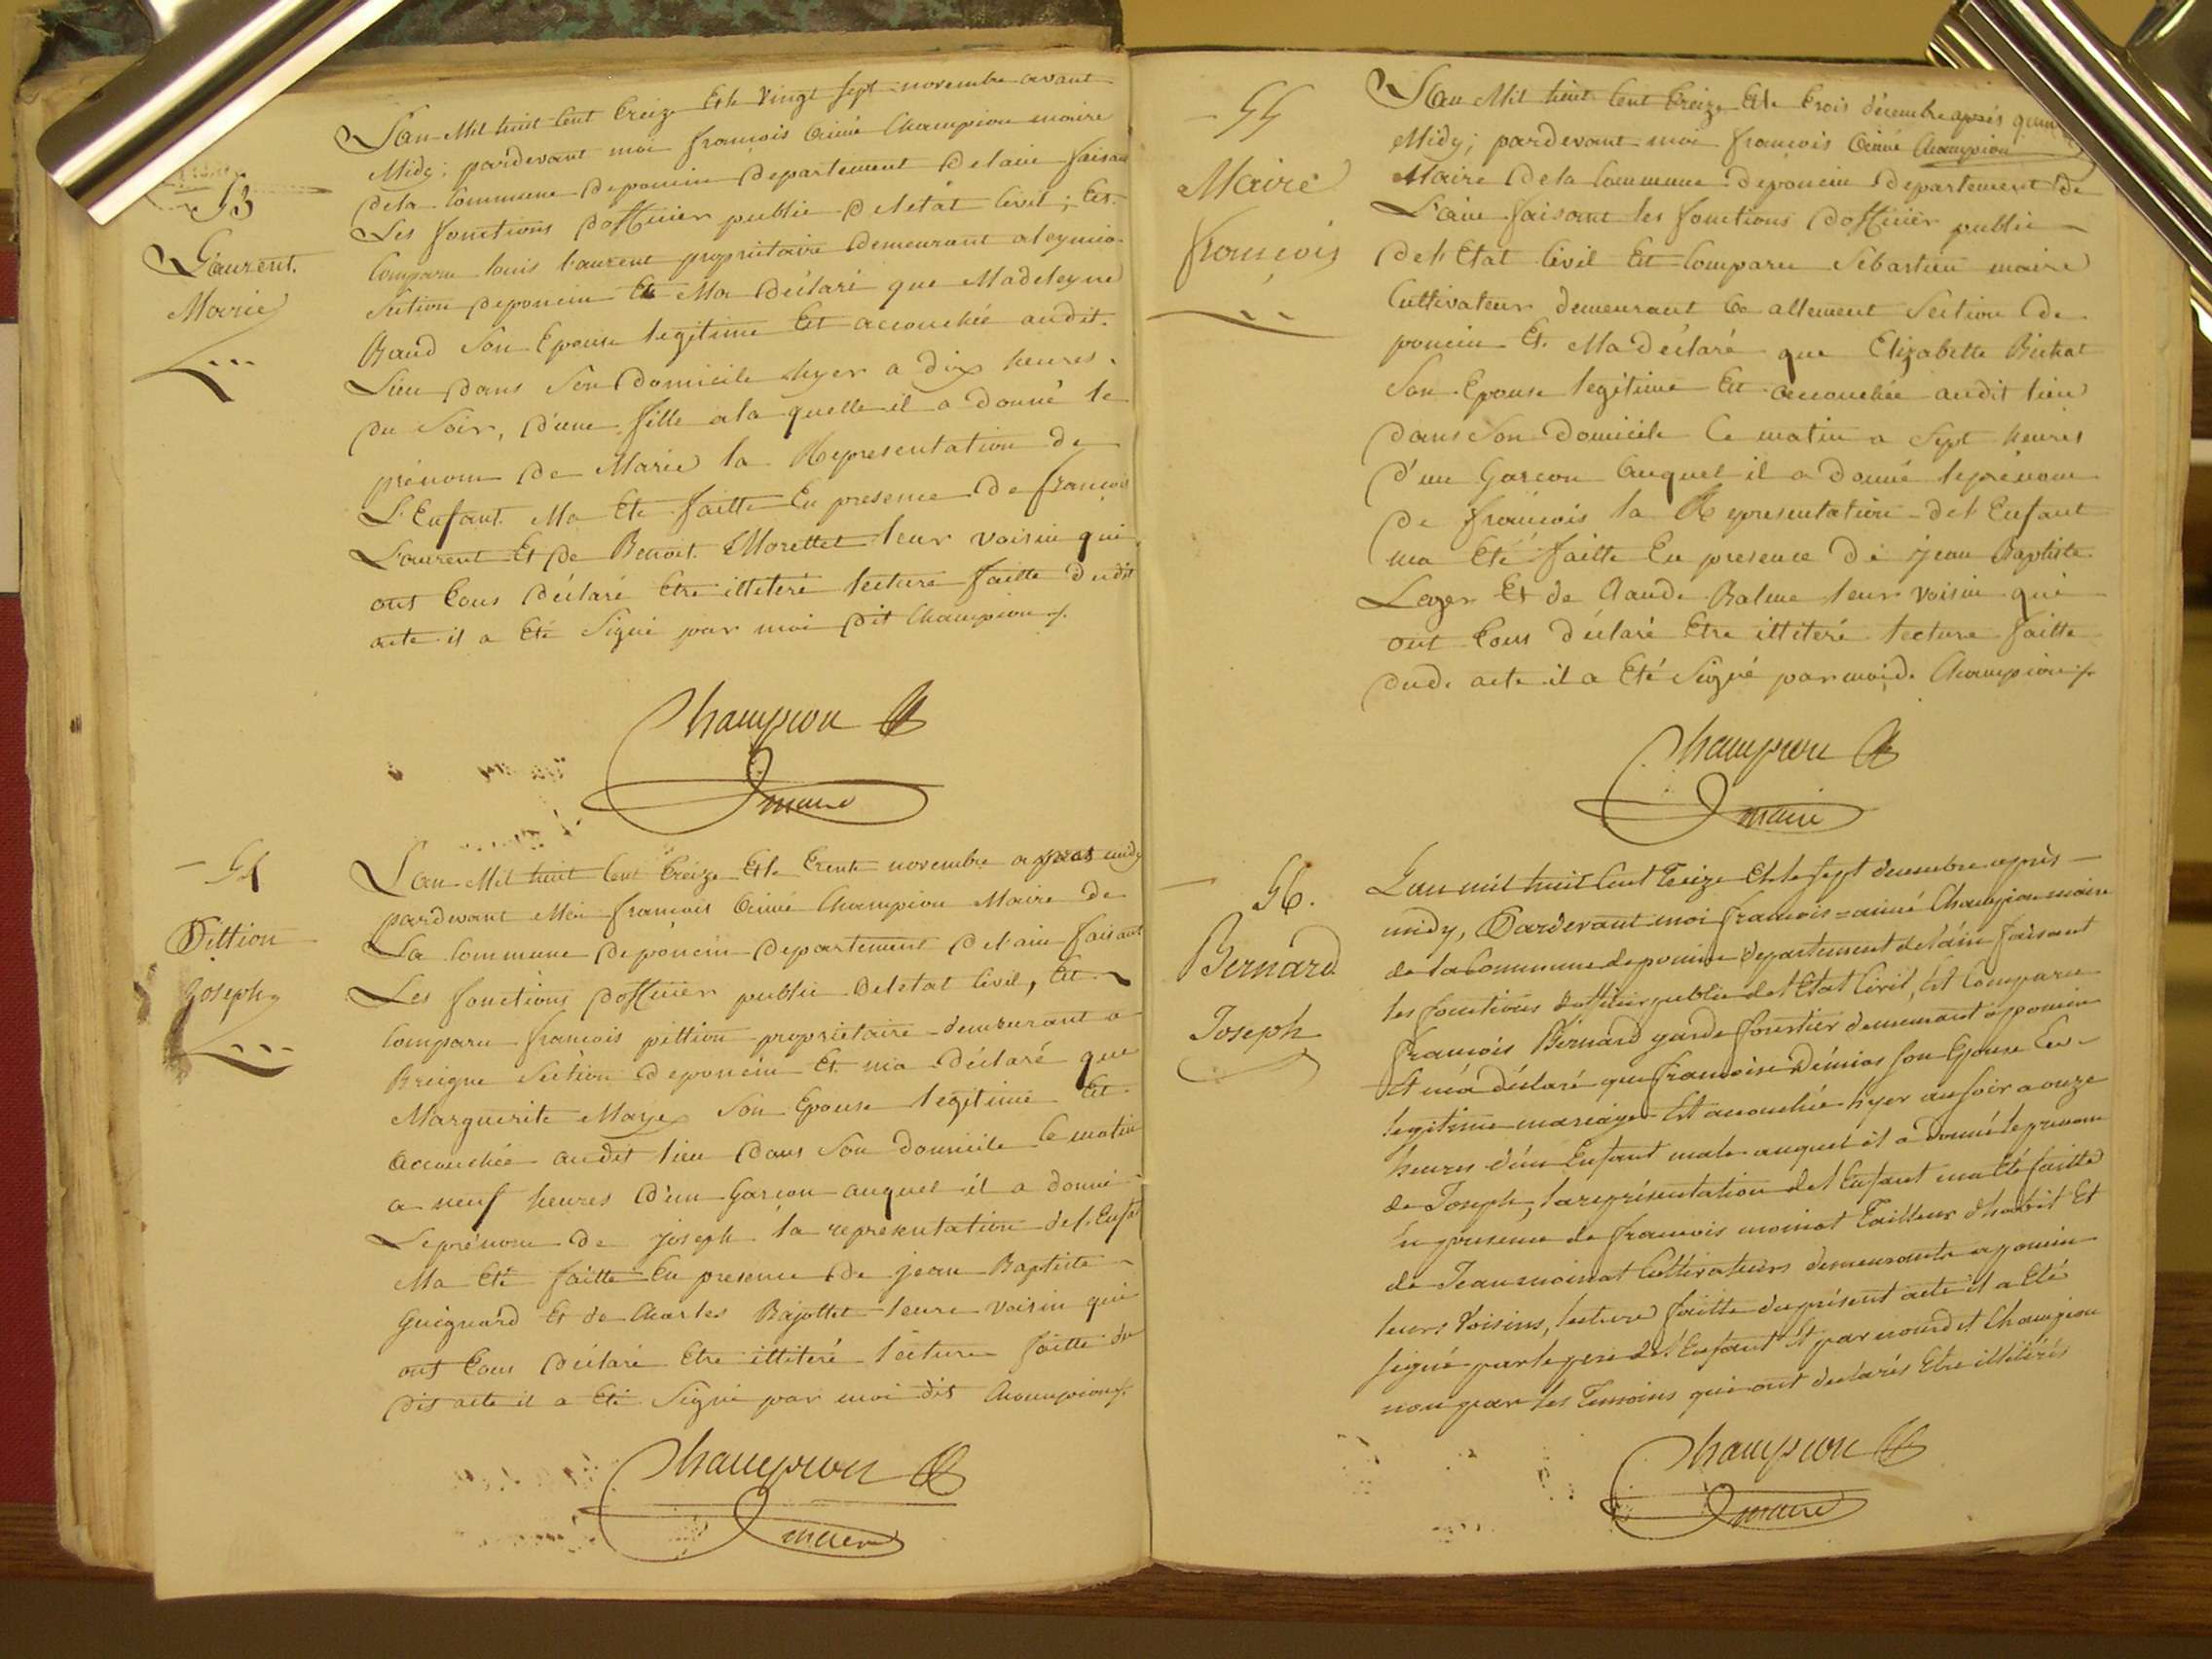 53
Laurent
Marie
L'an Mil huit Cent treize Et le vingt sept novembre avant
Midy; pardevant moi françois Aimé Champion maire
de la Commune deponcin département delain faisant
Les fonctions d'officier public deletat Civil; Est
Comparu louis laurent propriétaire demeurant a leymia
Section deponcin Et Ma déclaré que Madeleyne
Baud Son Epouse legitime Est accouchée audit
Lieu dans Son Domicile hyer a dix heures
Du Soir, d'une fille a la quelle il a donné le
prénom de Marie la Representation de
L'Enfant Ma Eté faitte En presence de françois
Laurent Et de Benoit Morettet leur voisin qui
ont tous déclaré Etre illiteré lecture faitte dudit
acte il a Eté Signé par moi dit Champion
Champion
maire
54
Pittion
Joseph
L'an Mil huit Cent treize Et le trente novembre apres midy
pardevant Moi françois Aimé Champion Maire de
La Commune deponcin departement delain faisant
Les fonctions d'officier public deletat Civil, Est
Comparu françois pittion propriétaire demeurant a
Breigne Section deponcin Et ma déclaré que
Marguerite Maye Son Epouse legitime Est
accouchée audit lieu dans Son domicile Ce matin
a neuf heures d'un Garcon auquel il a donné
Le prénom de joseph la representation del'Enfant
Ma Eté faitte En presence de jean Baptiste
Guignard Et de Charles Bajottet leurs voisin qui
ont tous déclaré Etre illiteré lecture faitte du
dit acte il a Eté Signé par moi dit Champion
Champion
maire
55
Maire
françois
L'an Mil huit Cent treize Et le trois décembre après
Midy; pardevant moi francois Aimé Champion
Maire de la Commune deponcin departement de
L'ain faisant les fonctions d'officier public
del'Etat Civil Est Comparu Sébastien maire
Cultivateur demeurant a allement Section de
poncin Et Ma déclaré que Elizabette Bichat
Son Epouse legitime Est accouchée audit lieu
dans Son domicile Ce matin a Sept heures
d'un Garcon auquel il a donné le prénom
de françois la Representation del'Enfant
ma Eté faitte En presence de jean Baptiste
Leger Et de Claude Balme leur voisin qui
ont tous déclaré Etre illiteré lecture faitte
dud. acte il a Eté Signé par moi d. Champion
Champion
maire
56.
Bernard
Joseph
L'an mil huit Cent treize Et le sept decembre après
midy, Pardevant moi francois=aimé Champion maire
de la Commune deponcin departement delain faisant
les fonctions d'officier public del'Etat Civil, Est Comparu
françois Bernard garde forestier demeurant à poncin
Et m'a déclaré que francoise Démias son Epouse En
legitime mariage Est accouchée hyer au soir a onze
heures d'un Enfant male auquel il a donné le prenom
de Joseph, la représentation del'Enfant ma Eté faitte
En presence de francois moinat tailleur d'habit Et
de Jean moinat Cultivateurs demeurants a poncin
leurs Voisins, lecture faitte du présent acte il a Eté
signé par le pere del'Enfant Et par nous dit Champion
non par les temoins qui ont declarés Etre illitérés
Champion
maire